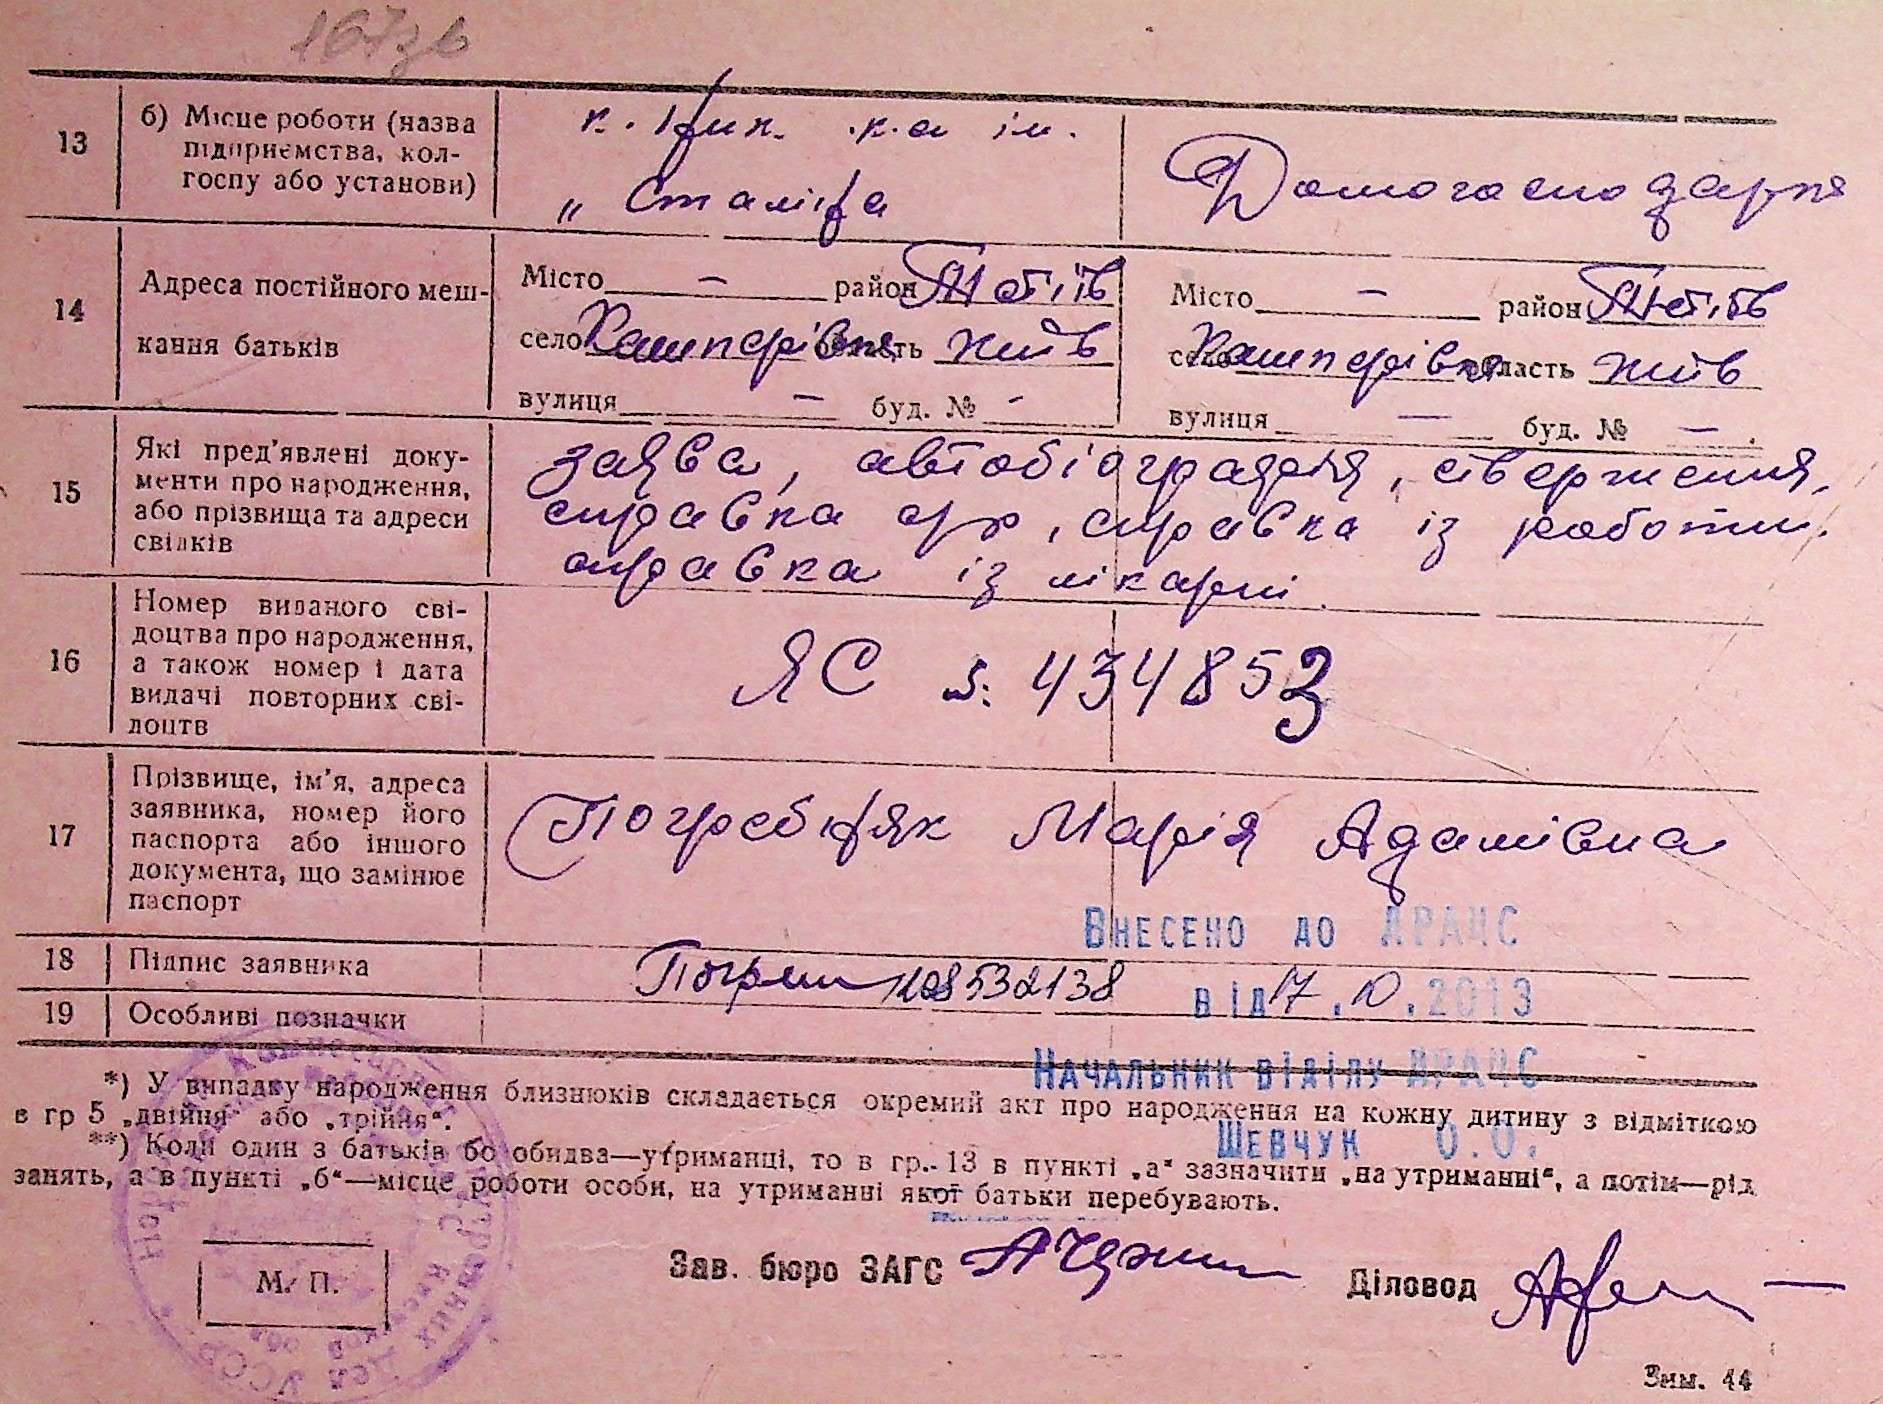 167зв
13
б) Місце роботи (назва
підприємства, кол-
госпу або установи)
к-а ім.
„ Сталіна
Домогосподарка
14
Адреса постійного меш-
кання батьків
Місто — район Тетіїв
село Кашперівка область Київ
вулиця — буд. № -
Місто — район Тетіїв
село Кашперівка область Київ
вулиця — буд. № —
15
Які пред'явлені доку-
менти про народження,
або прізвища та адреси
свідків
заява, автобіографія, ствержения,
справка, справка із роботи.
справка із лікарні.
16
Номер виданого сві-
доцтва про народження,
а також номер і дата
видачі повторних сві-
доцтв
ЯС 434853
17
Прізвище, ім'я, адреса
заявника, номер його
паспорта або іншого
документа, що замінює
паспорт
Погребняк Марія Адамівна
Внесено до ДРАЦС
18
Підпис заявника
08532138
від 17.10.2013
19
Особливі позначки
Начальник відділу ДРАЦС
*) У випадку народження близнюків складається окремий акт про народження на кожну дитину з відміткою
в гр 5 „двійня“ або „трійня“.
Шевчук О.О.
**) Коли один з батьків бо обидва—утриманці, то в гр.- 13 в пункті „а“ зазначити „на утриманні“, а потім—рід
занять, а в пункті „б“—місце роботи особи, на утриманні якої батьки перебувають.
М. П.
Зав. бюро ЗАГС
Діловод
Зим. 44